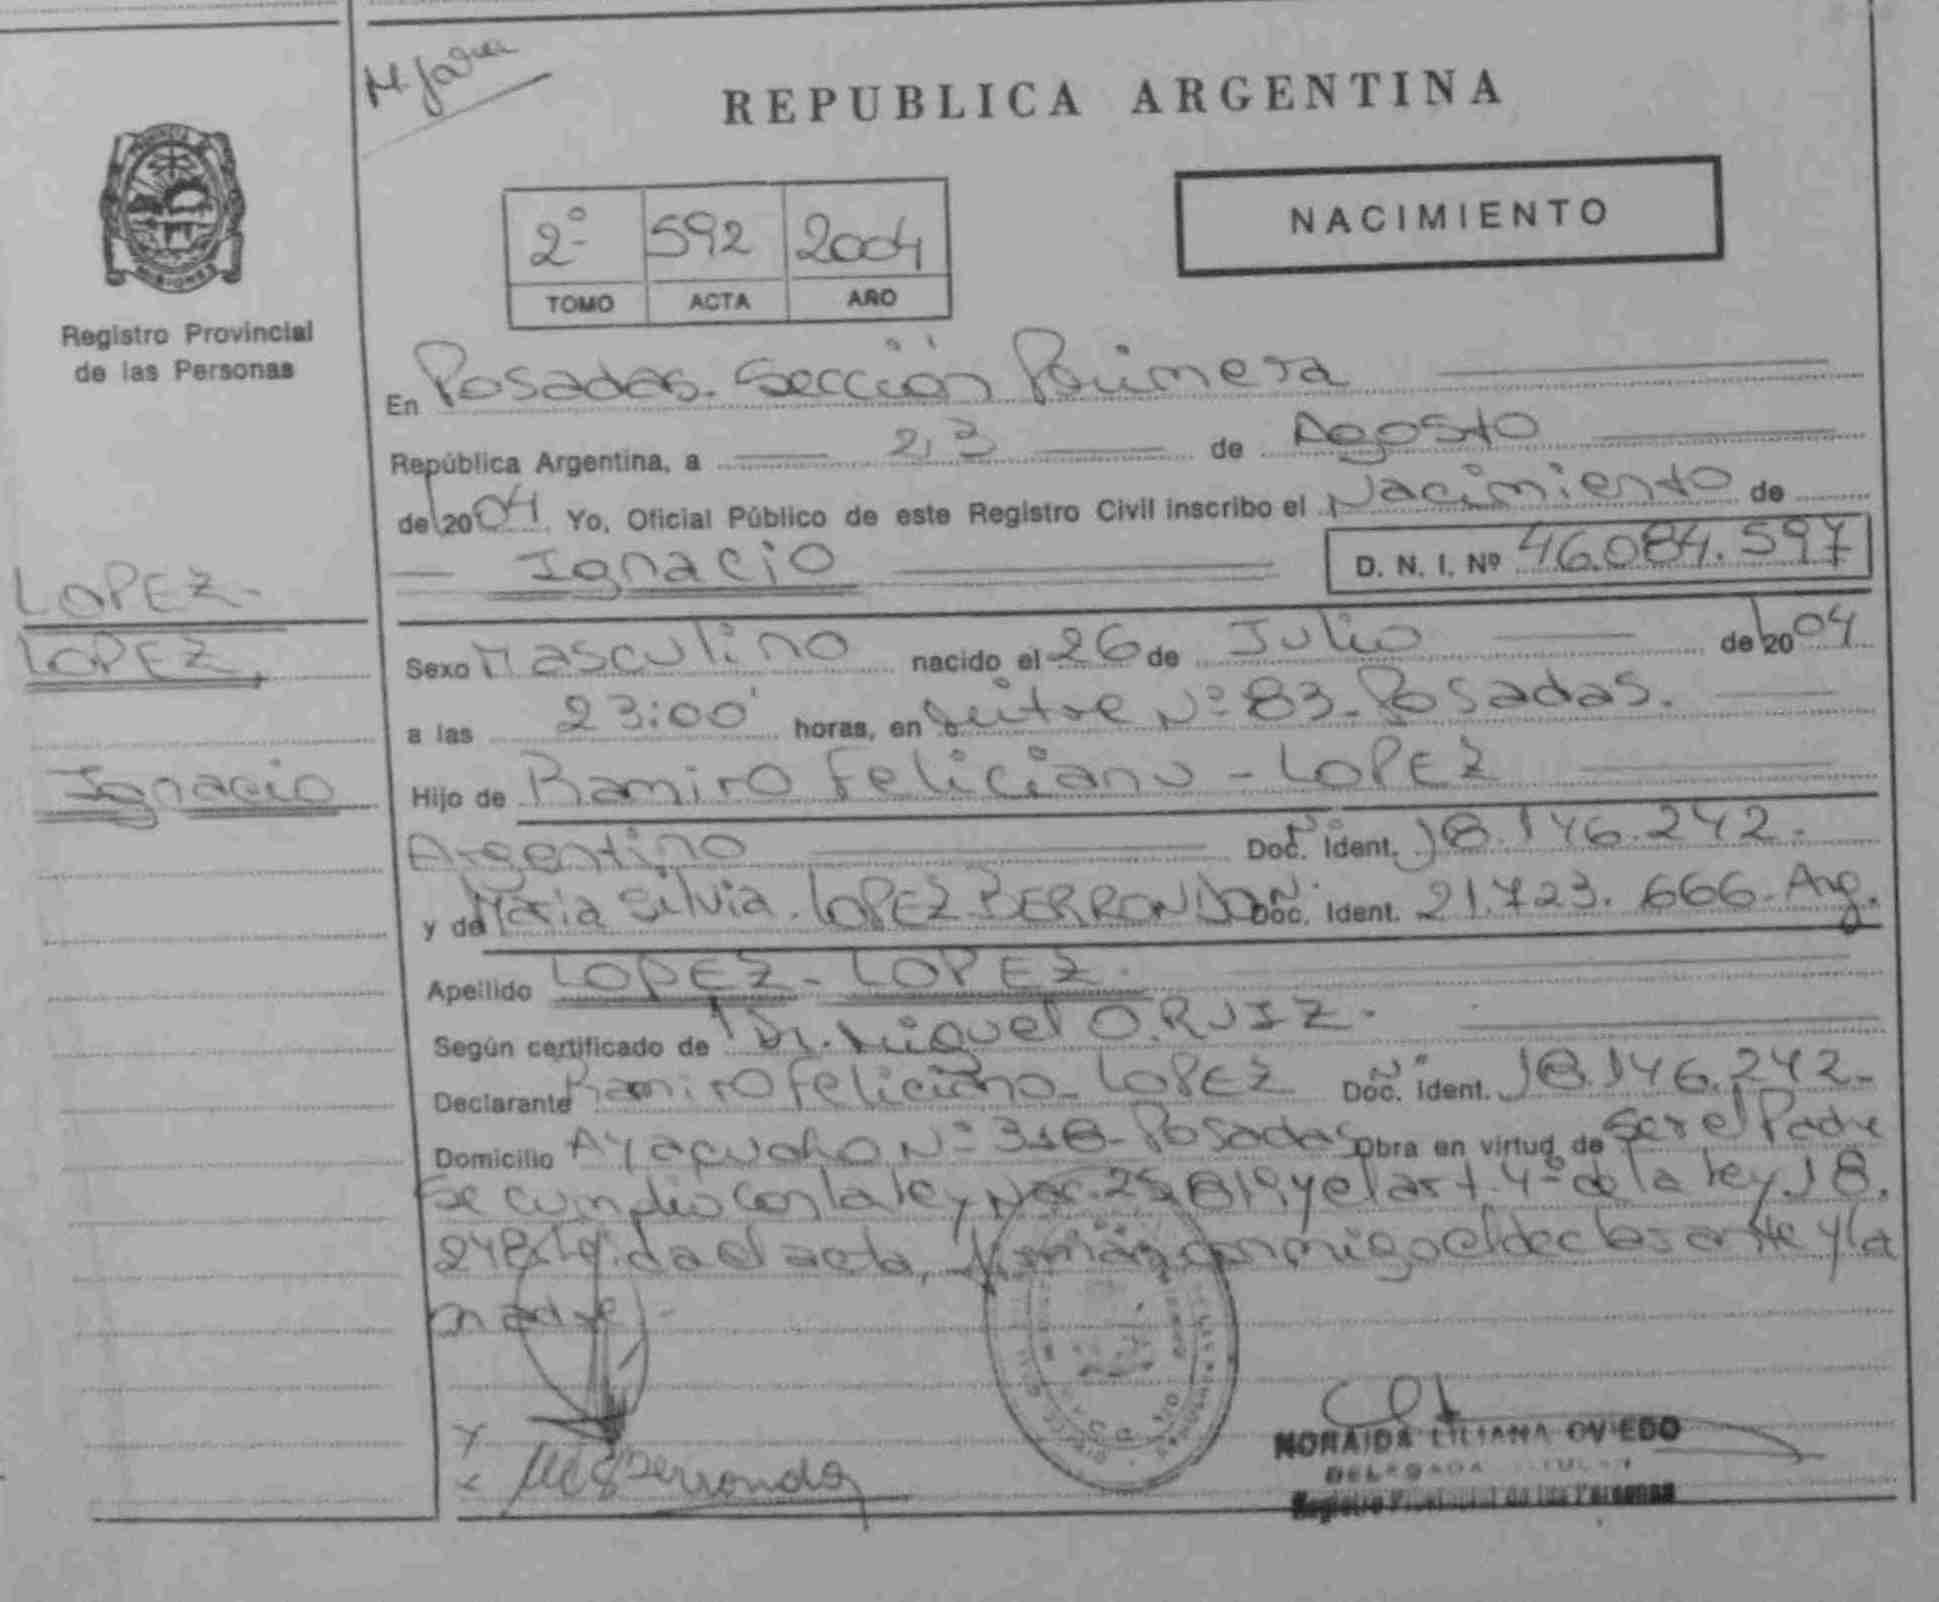 REPUBLICA ARGENTINA
NACIMIENTO
2º 592 2004
TOMO ACTA AÑO
MISIONES
Registro Provincial
de las Personas
En Posadas. Sección Primera
República Argentina, a 23 de Agosto
de 2004 Yo, Oficial Público de este Registro Civil inscribo el Nacimiento de
Ignacio D. N. I. Nº 46.084.597
LOPEZ-
LOPEZ.
Ignacio
Sexo Masculino nacido el 26 de Julio de 2004
a las 23:00 horas, en Nº 83-Posadas.
Hijo de Ramiro Feliciano - LOPEZ
Argentino Doc. Ident. 18.146.242.
y de Maria Silvia. LOPEZ BERRONDO Doc. Ident. 21.723.666-Arg.
Apellido LOPEZ - LOPEZ.
Según certificado de Dr. Miguel O. RUIZ.
Declarante Ramiro Feliciano - LOPEZ Doc. Ident. 18.146.242-
Domicilio Ayacucho Nº 318-Posadas Obra en virtud de Ser el Padre
Se cumplio con la ley Nac. 25.819 y el art. 4º de la ley 18.
248. Leida el acta, firman conmigo el declarante y la
madre
NORAIDA LILIANA OVIEDO
DELEGADA TITULAR
Registro Provincial de las Personas